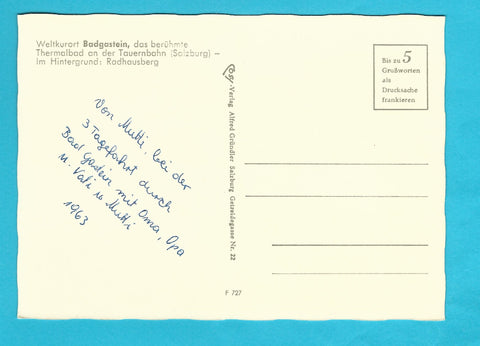 Weltkurort Badgastein, das berühmte
Thermalbad an der Tauernbahn (Salzburg) –
Im Hintergrund: Radhausberg
Bis zu 5
Grußworten
als
Drucksache
frankieren
-Verlag Alfred Gründler Salzburg Getreidegasse Nr. 22
Von Mutti, bei der
3 Tagefahrt durch
Bad Gastein mit Oma, Opa
u. Vati u Mutti
1963
F 727